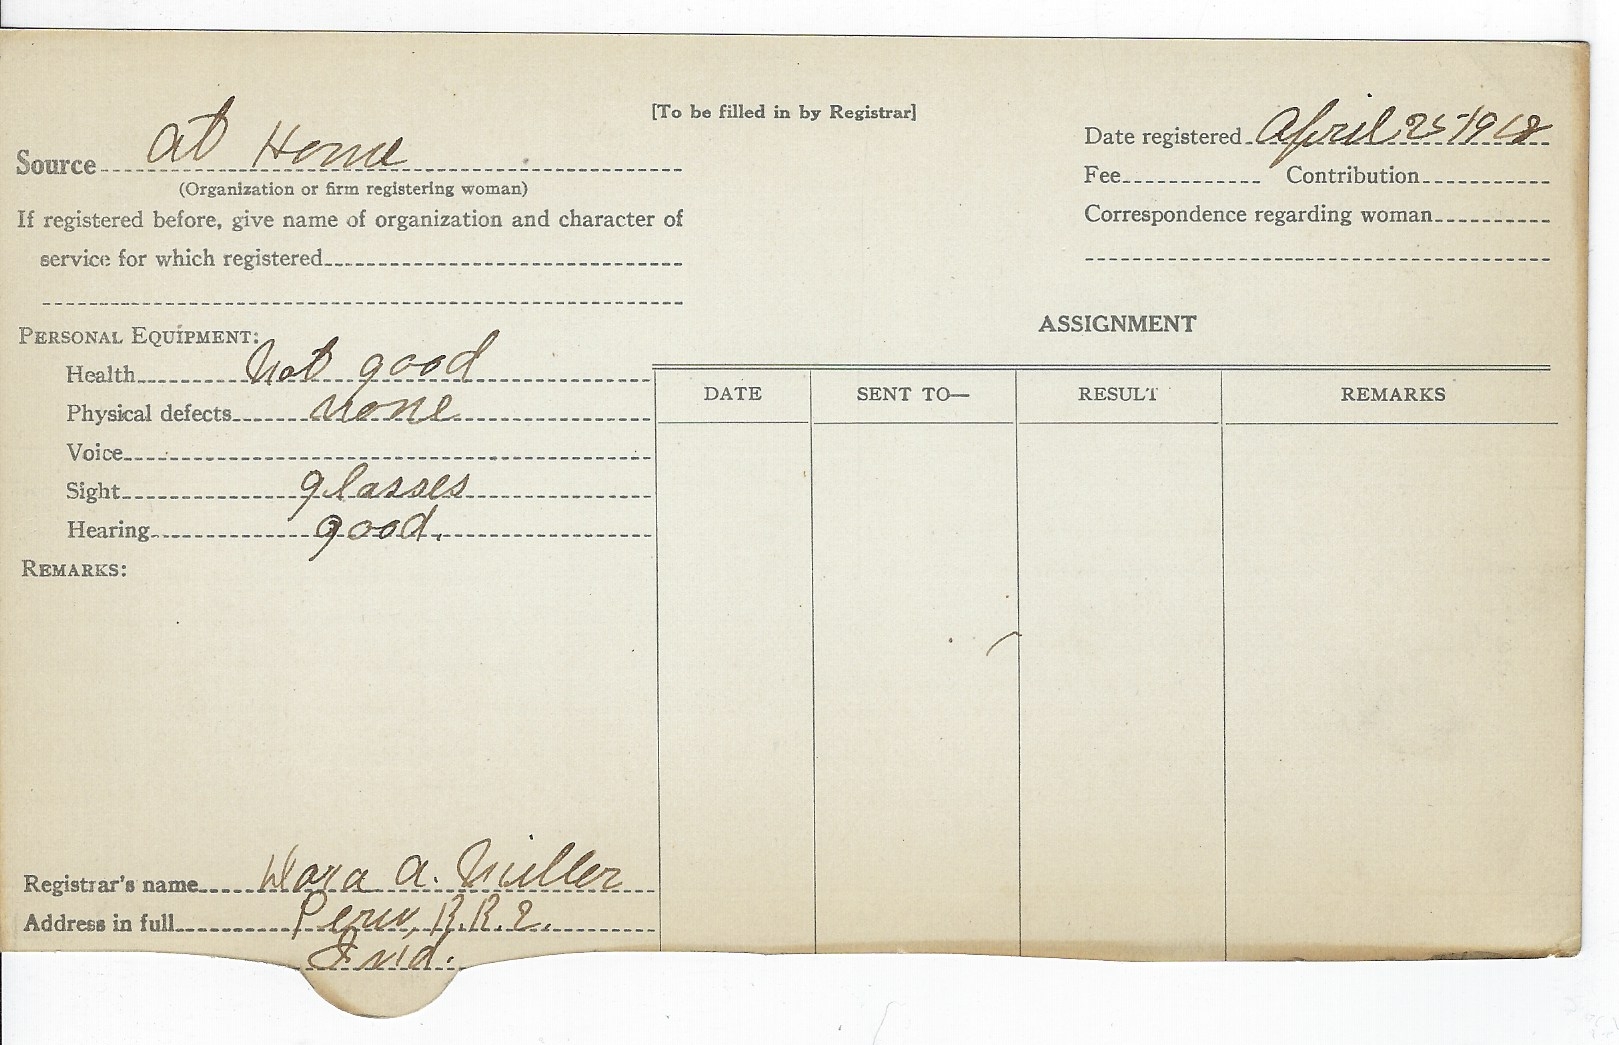 [To be filled in by Registrar]
Source at Home
(Organization or firm registering woman)
If registered before, give name of organization and character of
service for which registered
Date registered April 25 1918
Fee Contribution
Correspondence regarding woman
PERSONAL EQUIPMENT:
Health Not good
Physical defects none
Voice
Sight glasses
Hearing good.
REMARKS:
ASSIGNMENT
DATE SENT TO— RESULT REMARKS
Registrar's name Dora A. Miller
Address in full Peru, R.R.2.
Ind.